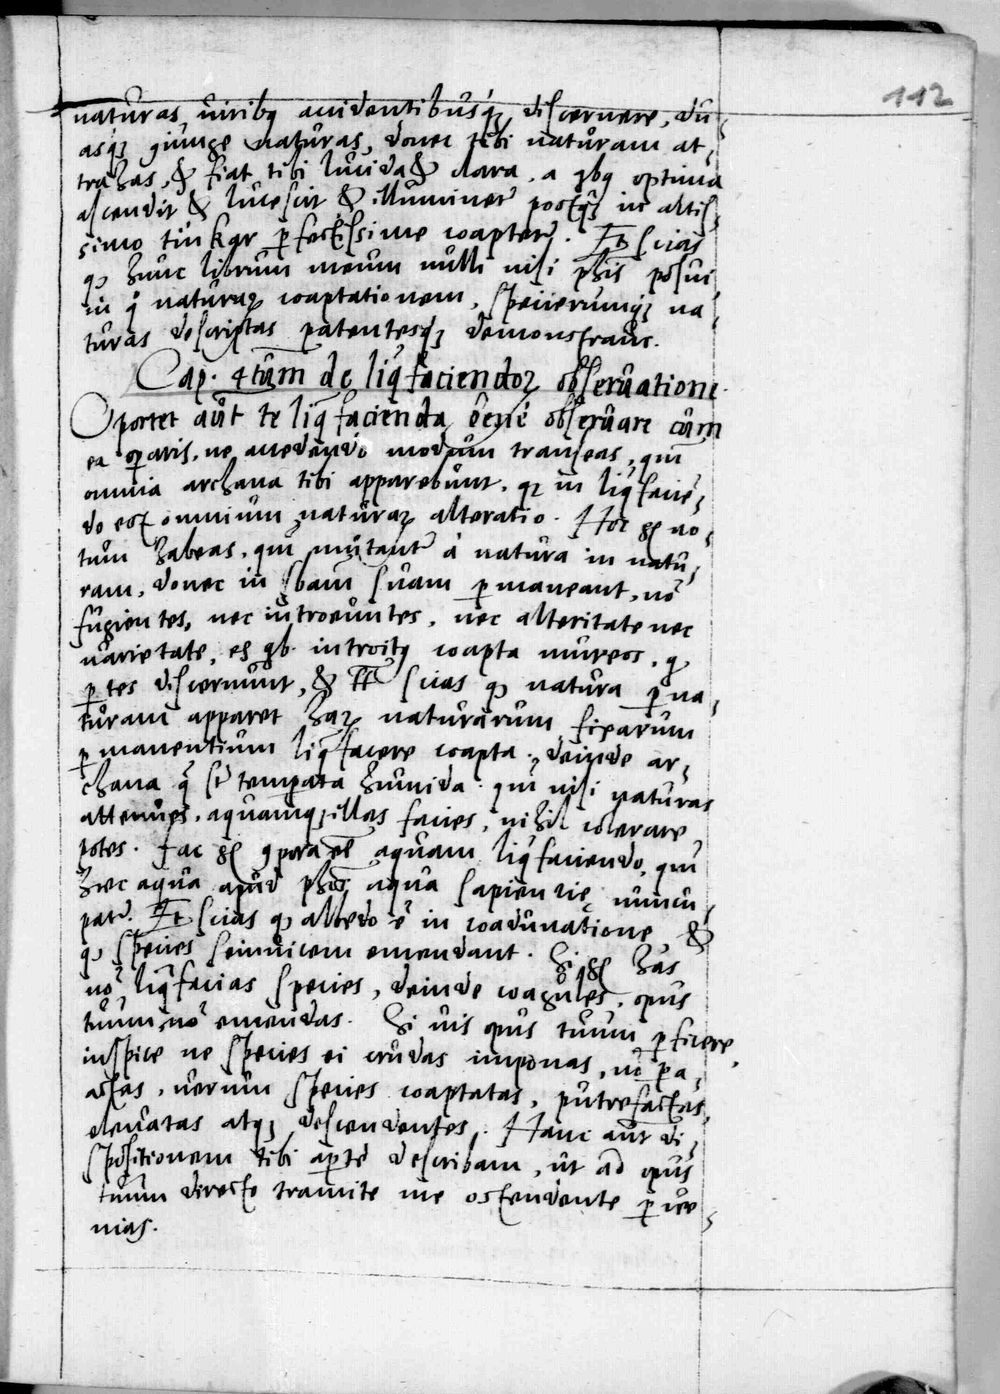 112
naturas uiribꝫ accidentibusqꝫ discernere, du-
asqꝫ giunge naturas, donec tibi naturam at-
trahas, & fiat tibi lucida & clara, a qbꝫ optima
ascendit & lucescit & illuminet' postqꝫ in altis-
simo tinkar pfectissime coaptet'. Et scias
qꝫ hunc librum meum nulli nisi phis posui
in quo naturaꝝ coaptationem, specierumqꝫ na-
turas descriptas patentesqꝫ demonstraui.
Cap. 4tũm de liq̃faciendoꝝ obseruatione.
Oportet aũt te liq̃facienda bene obseruare cũm
ea opatis, ne accedendo modum transeas, qm̃
omnia archana tibi apparebunt, qꝫ in liq̃faciẽ-
do est omnium naturaꝝ alteratio. Hoc g̃ no-
tum habeas, qm̃ mutant' à natura in natu-
ram, donec in sbam suam pmaneant, nõ
fugientes, nec introeuntes, nec alteritate nec
uarietate, es qb. introitꝫ coapta mureos, qꝫ
ptes discernunt, & scias qꝫ natura p na-
turam apparet haꝝ naturarum fixarum
pmanentium liq̃facere coapta, deinde ar-
chana q̃ st̃ temperata humida qm̃ nisi naturas
attenues, aquamqꝫ illas facies, nihil colerare
potes. Fac g̃ gpora eẽ aquam liq̃faciendo, qm̃
hec aqua apud phos aqua sapientię nuncu-
pat'. Et scias qꝫ albedo ẽ in coadunatione, &
qꝫ species seinuicem emendant. Si g̃ has
nõ liq̃facias species, deinde coagules, opus
tuum nõ emendas. Si uis opus tuum pficere,
inspice ne species ei crudas imponas, nec pa-
actas, uerum species coaptatas, putrefactas,
eleuatas atqꝫ descendentes. Hanc aũt di-
spositionem tibi apte describam, ut ad opus
tuum directo tramite me ostendente pue-
nias.